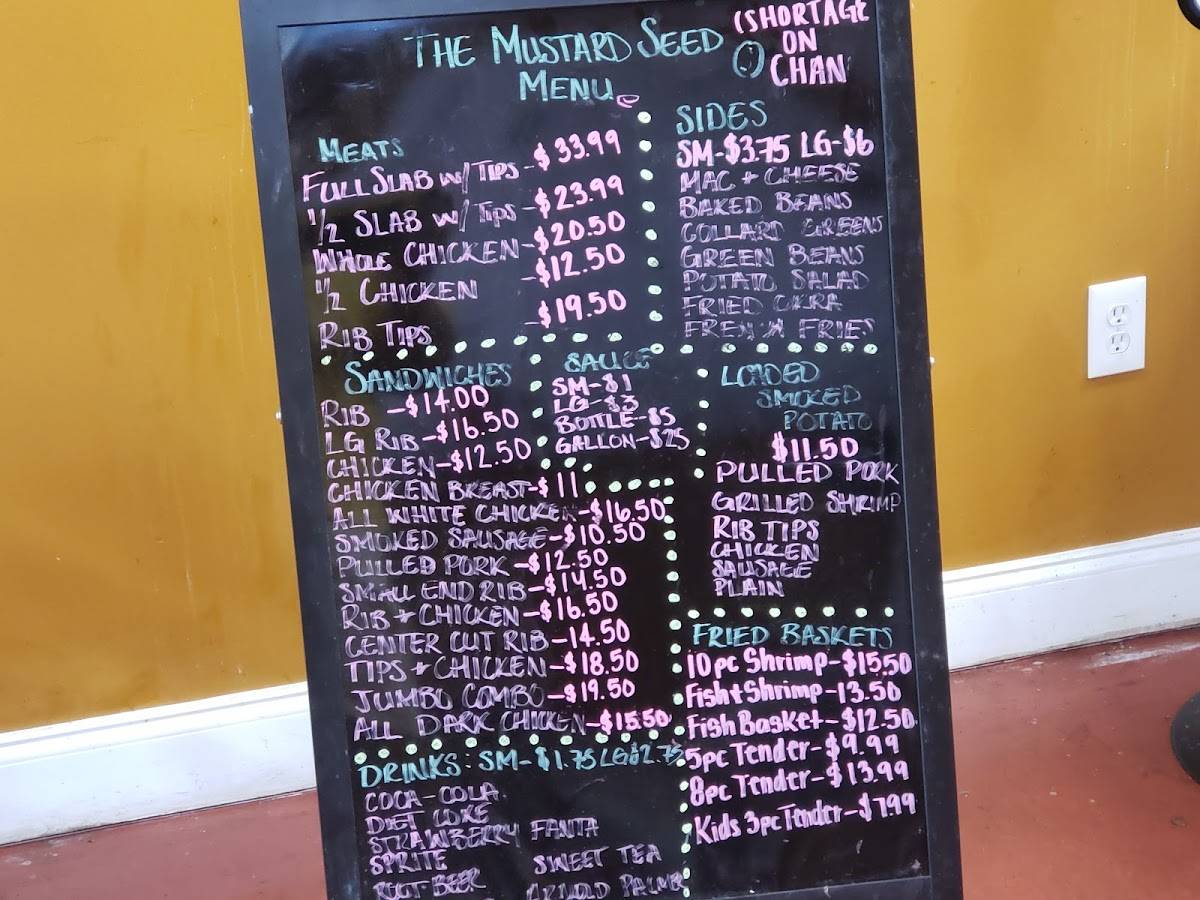 THE MUSTARD SEED
MENU
(SHORTAGE
ON
CHAN
MEATS
FULL SLAB W/ TIPS - $33.99
1/2 SLAB W/ TIPS - $23.99
WHOLE CHICKEN - $20.50
1/2 CHICKEN - $12.50
RIB TIPS - $19.50
SIDES
SM-$3.75 LG-$6
MAC + CHEESE
BAKED BEANS
COLLARD GREENS
GREEN BEANS
POTATO SALAD
FRIED OKRA
FRENCH FRIES
SANDWICHES
RIB -$14.00
LG RIB-$16.50
CHICKEN-$12.50
CHICKEN BREAST-$11
ALL WHITE CHICKEN-$16.50
SMOKED SAUSAGE-$10.50
PULLED PORK-$12.50
SMALL END RIB-$14.50
RIB + CHICKEN-$16.50
CENTER CUT RIB-14.50
TIPS + CHICKEN-$18.50
JUMBO COMBO-$19.50
ALL DARK CHICKEN-$15.50
SAUCE
SM-$1
LG-$3
BOTTLE-$5
GALLON-$25
LOADED
SMOKED
POTATO
$11.50
PULLED PORK
GRILLED SHRIMP
RIB TIPS
CHICKEN
SAUSAGE
PLAIN
FRIED BASKETS
10pc Shrimp-$15.50
Fish+Shrimp-13.50
Fish Basket-$12.50
5pc Tender-$9.99
8pc Tender-$13.99
Kids 3pc Tender-$7.99
DRINKS: SM-$1.75 LG $2.75
COCA-COLA
DIET COKE
STRAWBERRY FANTA
SPRITE SWEET TEA
ROOT BEER ARNOLD PALMER